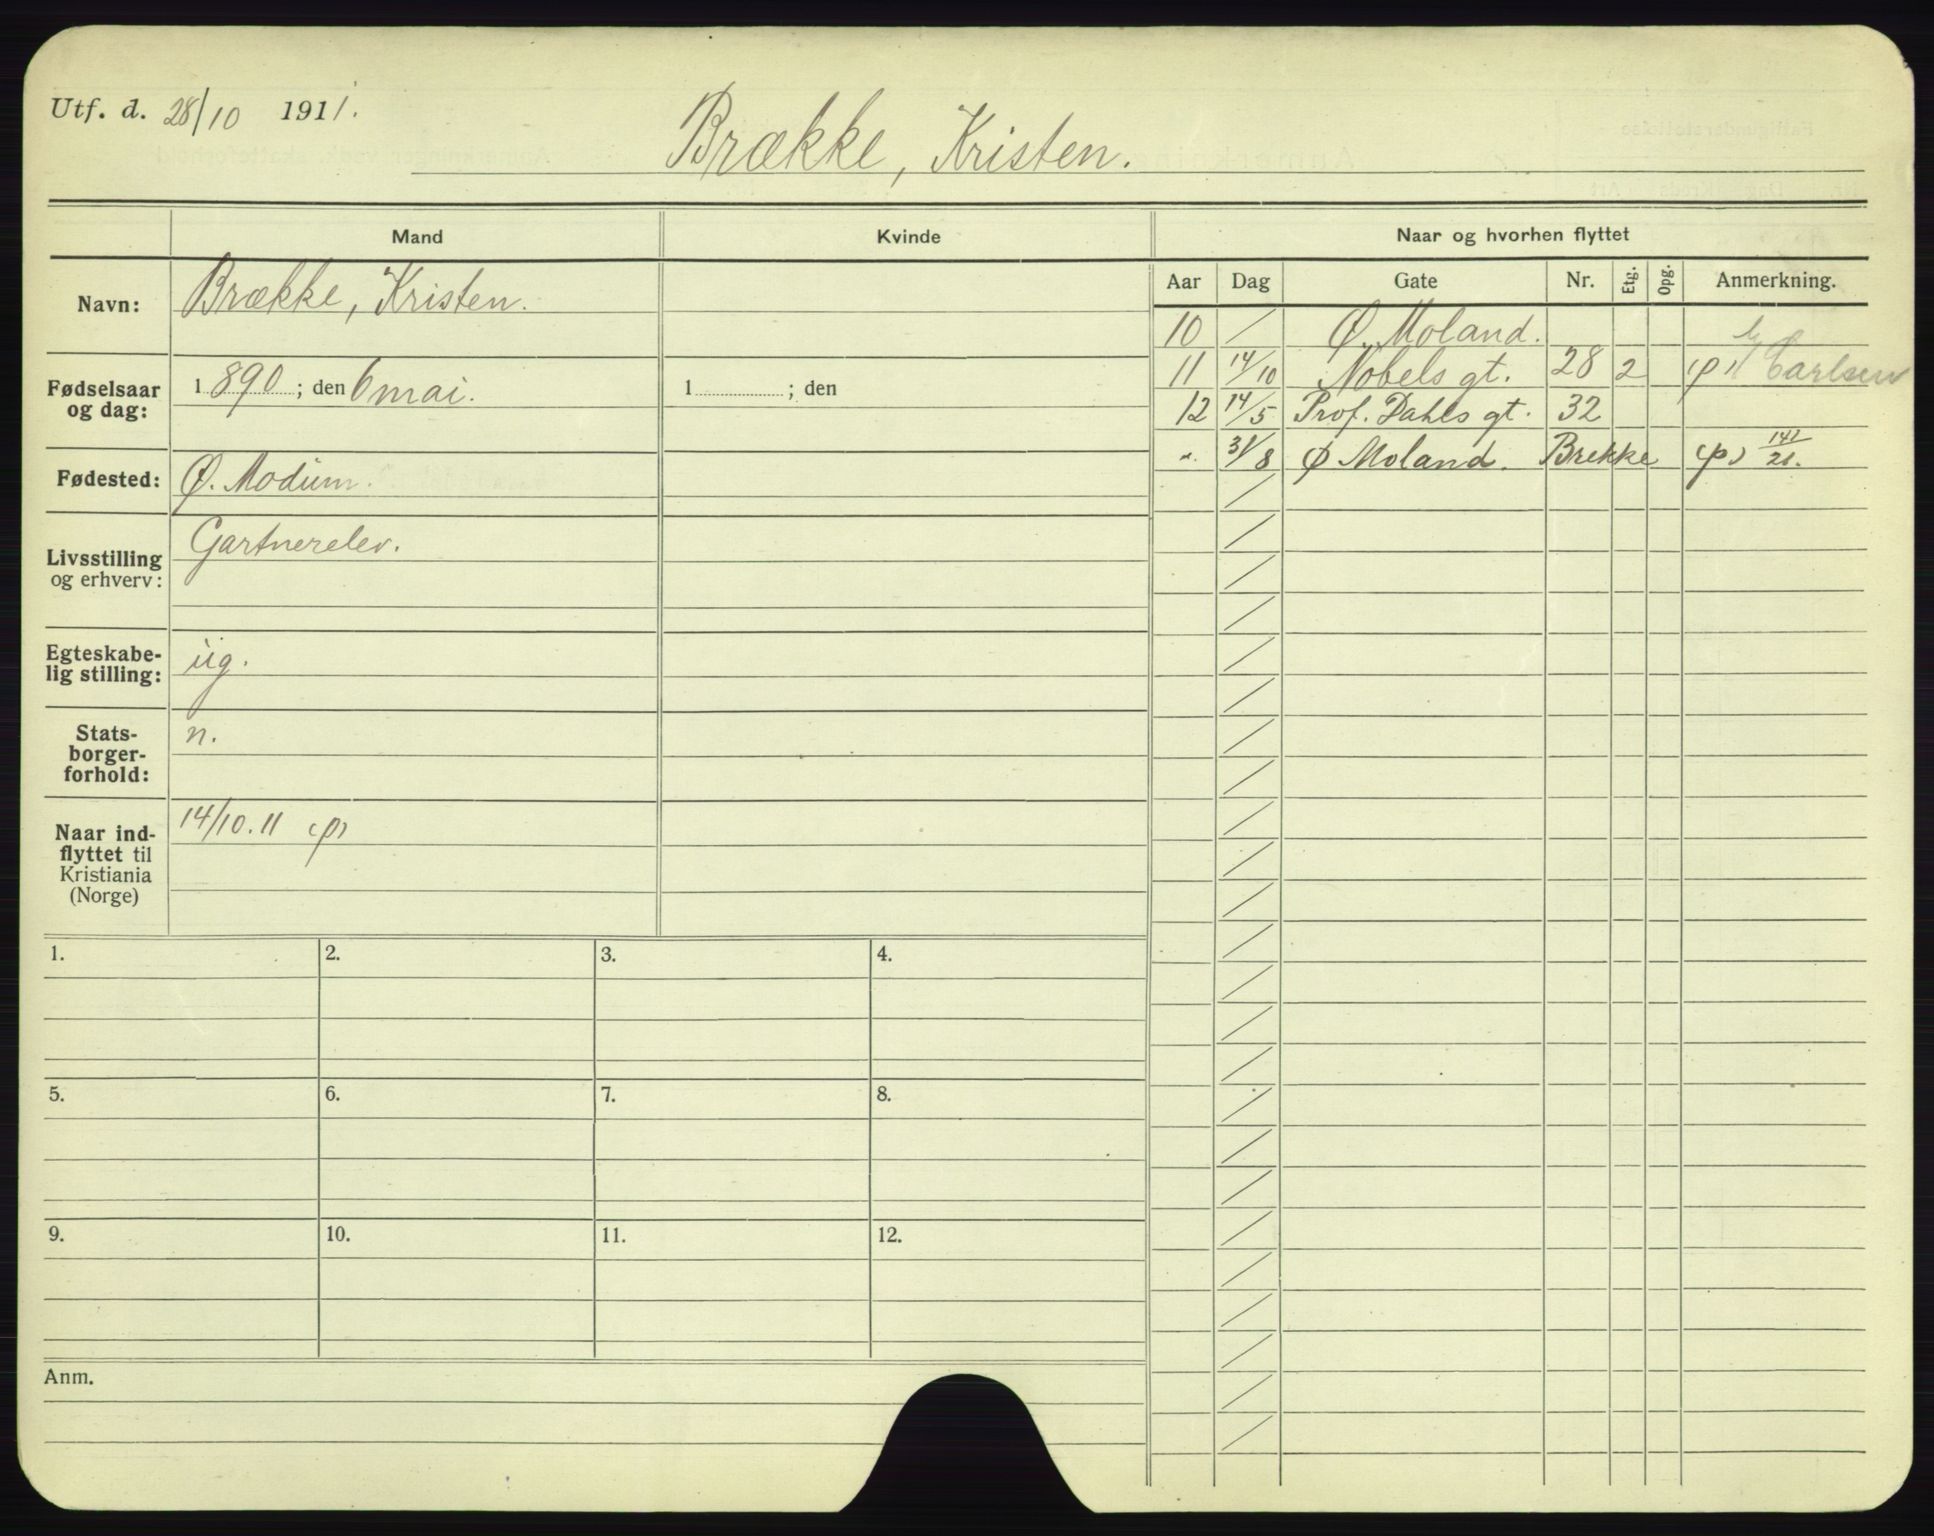 Utf. d. 28/10 1911.
Brække, Kristen.
Mand
Kvinde
Naar og hvorhen flyttet
Navn: Brække, Kristen.
Fødselsaar og dag: 1890; den 6 mai.
1 ; den
Fødested: Ø. Modum.
Livsstilling og erhverv: Gartnerelev.
Egteskabe-
lig stilling: ug.
Stats-
borger-
forhold: n.
Naar ind-
flyttet til
Kristiania
(Norge)
14/10.11 (p)
Aar Dag Gate Nr. Etg. Opg. Anmerkning.
10 / Ø. Moland.
11 14/10 Nobels gt. 28 2 (p) Carlsen
12 14/5 Prof. Dahls gt. 32
". 31/8 Ø Moland. Brekke (p) 141/21.
1. 2. 3. 4.
5. 6. 7. 8.
9. 10. 11. 12.
Anm.